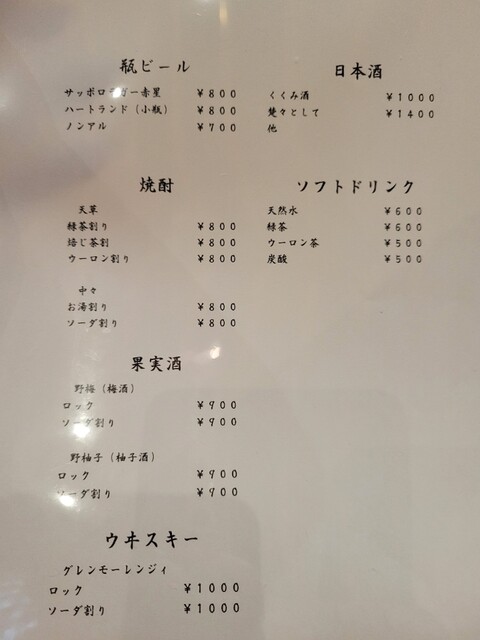 瓶ビール
サッポロラガー赤星 ¥800
ハートランド（小瓶） ¥800
ノンアル ¥700
日本酒
くくみ酒 ¥1000
楚々として ¥1400
他
焼酎
天草
緑茶割り ¥800
焙じ茶割 ¥800
ウーロン割り ¥800
中々
お湯割り ¥800
ソーダ割り ¥800
ソフトドリンク
天然水 ¥600
緑茶 ¥600
ウーロン茶 ¥500
炭酸 ¥500
果実酒
野梅（梅酒）
ロック ¥900
ソーダ割り ¥900
野柚子（柚子酒）
ロック ¥900
ソーダ割り ¥900
ウヰスキー
グレンモーレンジィ
ロック ¥1000
ソーダ割り ¥1000